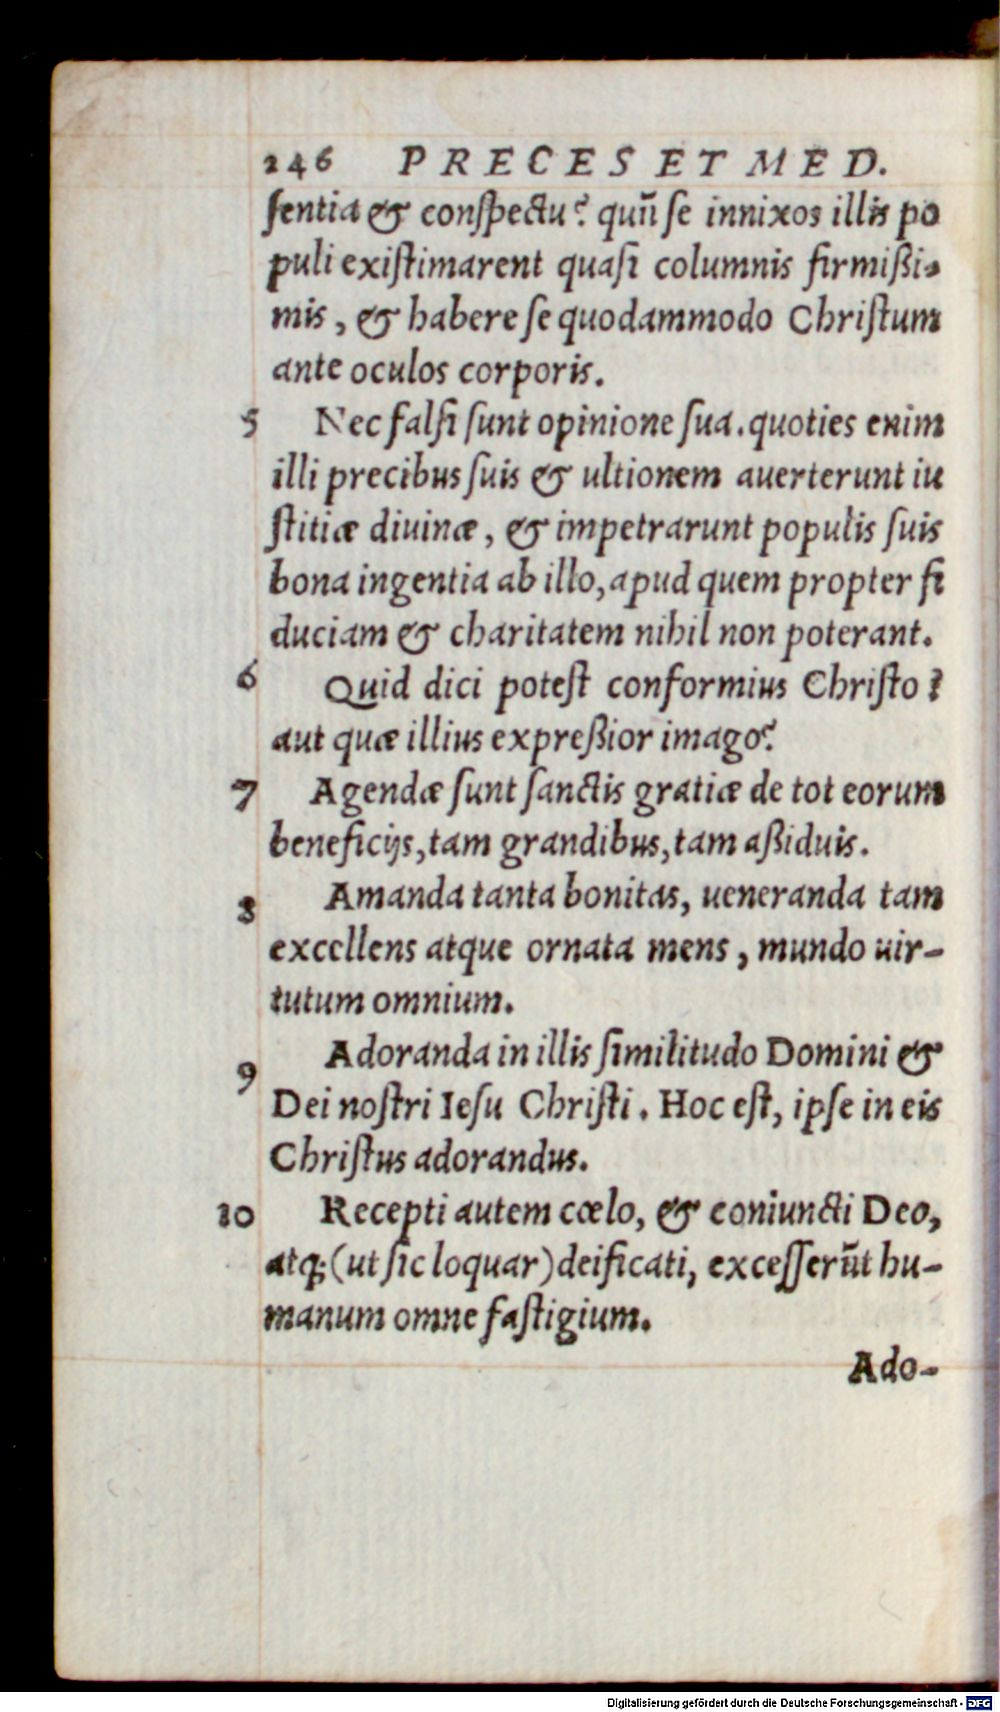 246 PRECES ET MED.
ſentia & conſpectu? quū ſe innixos illis po
puli exiſtimarent quaſi columnis firmißi-
mis, & habere ſe quodammodo Chriſtum
ante oculos corporis.
5 Nec falſi ſunt opinione ſua. quoties enim
illi precibus ſuis & ultionem auerterunt iu
ſtitiæ diuinæ, & impetrarunt populis ſuis
bona ingentia ab illo, apud quem propter fi
duciam & charitatem nihil non poterant.
6 Quid dici poteſt conformius Chriſto?
aut quæ illius expreßior imago?
7 Agendæ ſunt ſanctis gratiæ de tot eorum
beneficijs, tam grandibus, tam aßiduis.
8 Amanda tanta bonitas, ueneranda tam
excellens atque ornata mens, mundo uir-
tutum omnium.
9 Adoranda in illis ſimilitudo Domini &
Dei noſtri Ieſu Chriſti. Hoc eſt, ipſe in eis
Chriſtus adorandus.
10 Recepti autem cœlo, & coniuncti Deo,
atq; (ut ſic loquar) deificati, exceſſerūt hu-
manum omne faſtigium.
Ado-
Digitalisierung gefördert durch die Deutsche Forschungsgemeinschaft - DFG